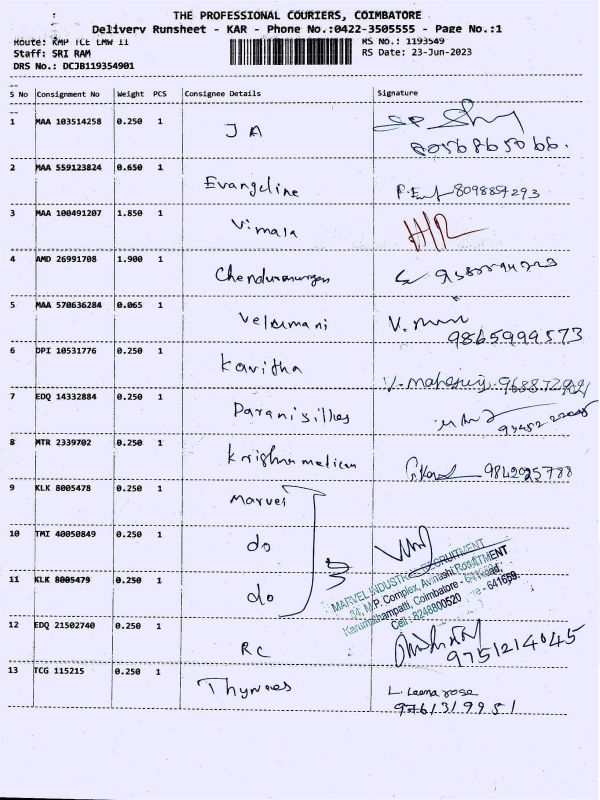 THE PROFESSIONAL COURIERS, COIMBATORE
Delivery Runsheet - KAR - Phone No.:0422-3505555 - Page No.:1
Route: KMP TCE LMW II RS No.: 1193549
Staff: SRI RAM RS Date: 23-Jun-2023
DRS No.: DCJB119354901
S No Consignment No Weight PCS Consignee Details Signature
1 MAA 103514258 0.250 1 J A
2 MAA 559123824 0.650 1 Evangeline 8098857293
3 MAA 100491207 1.850 1 Vimala
4 AMD 26991708 1.900 1
5 MAA 570636284 0.065 1 Velumani 9865999573
6 DPI 10531776 0.250 1 Kavitha
7 EDQ 14332884 0.250 1
8 MTR 2339702 0.250 1 9842025788
9 KLK 8005478 0.250 1 Marvel
10 TMI 40050849 0.250 1 do
11 KLK 8005479 0.250 1 do
MARVEL INDUSTRIAL RECRUITMENT
34, M.P. Complex, Avinashi Road,
Karumathampatti, Coimbatore - 641659.
Cell : 8248800520
12 EDQ 21502740 0.250 1 RC 9751214045
13 TCG 115215 0.250 1 L. Leema rose
9761319951